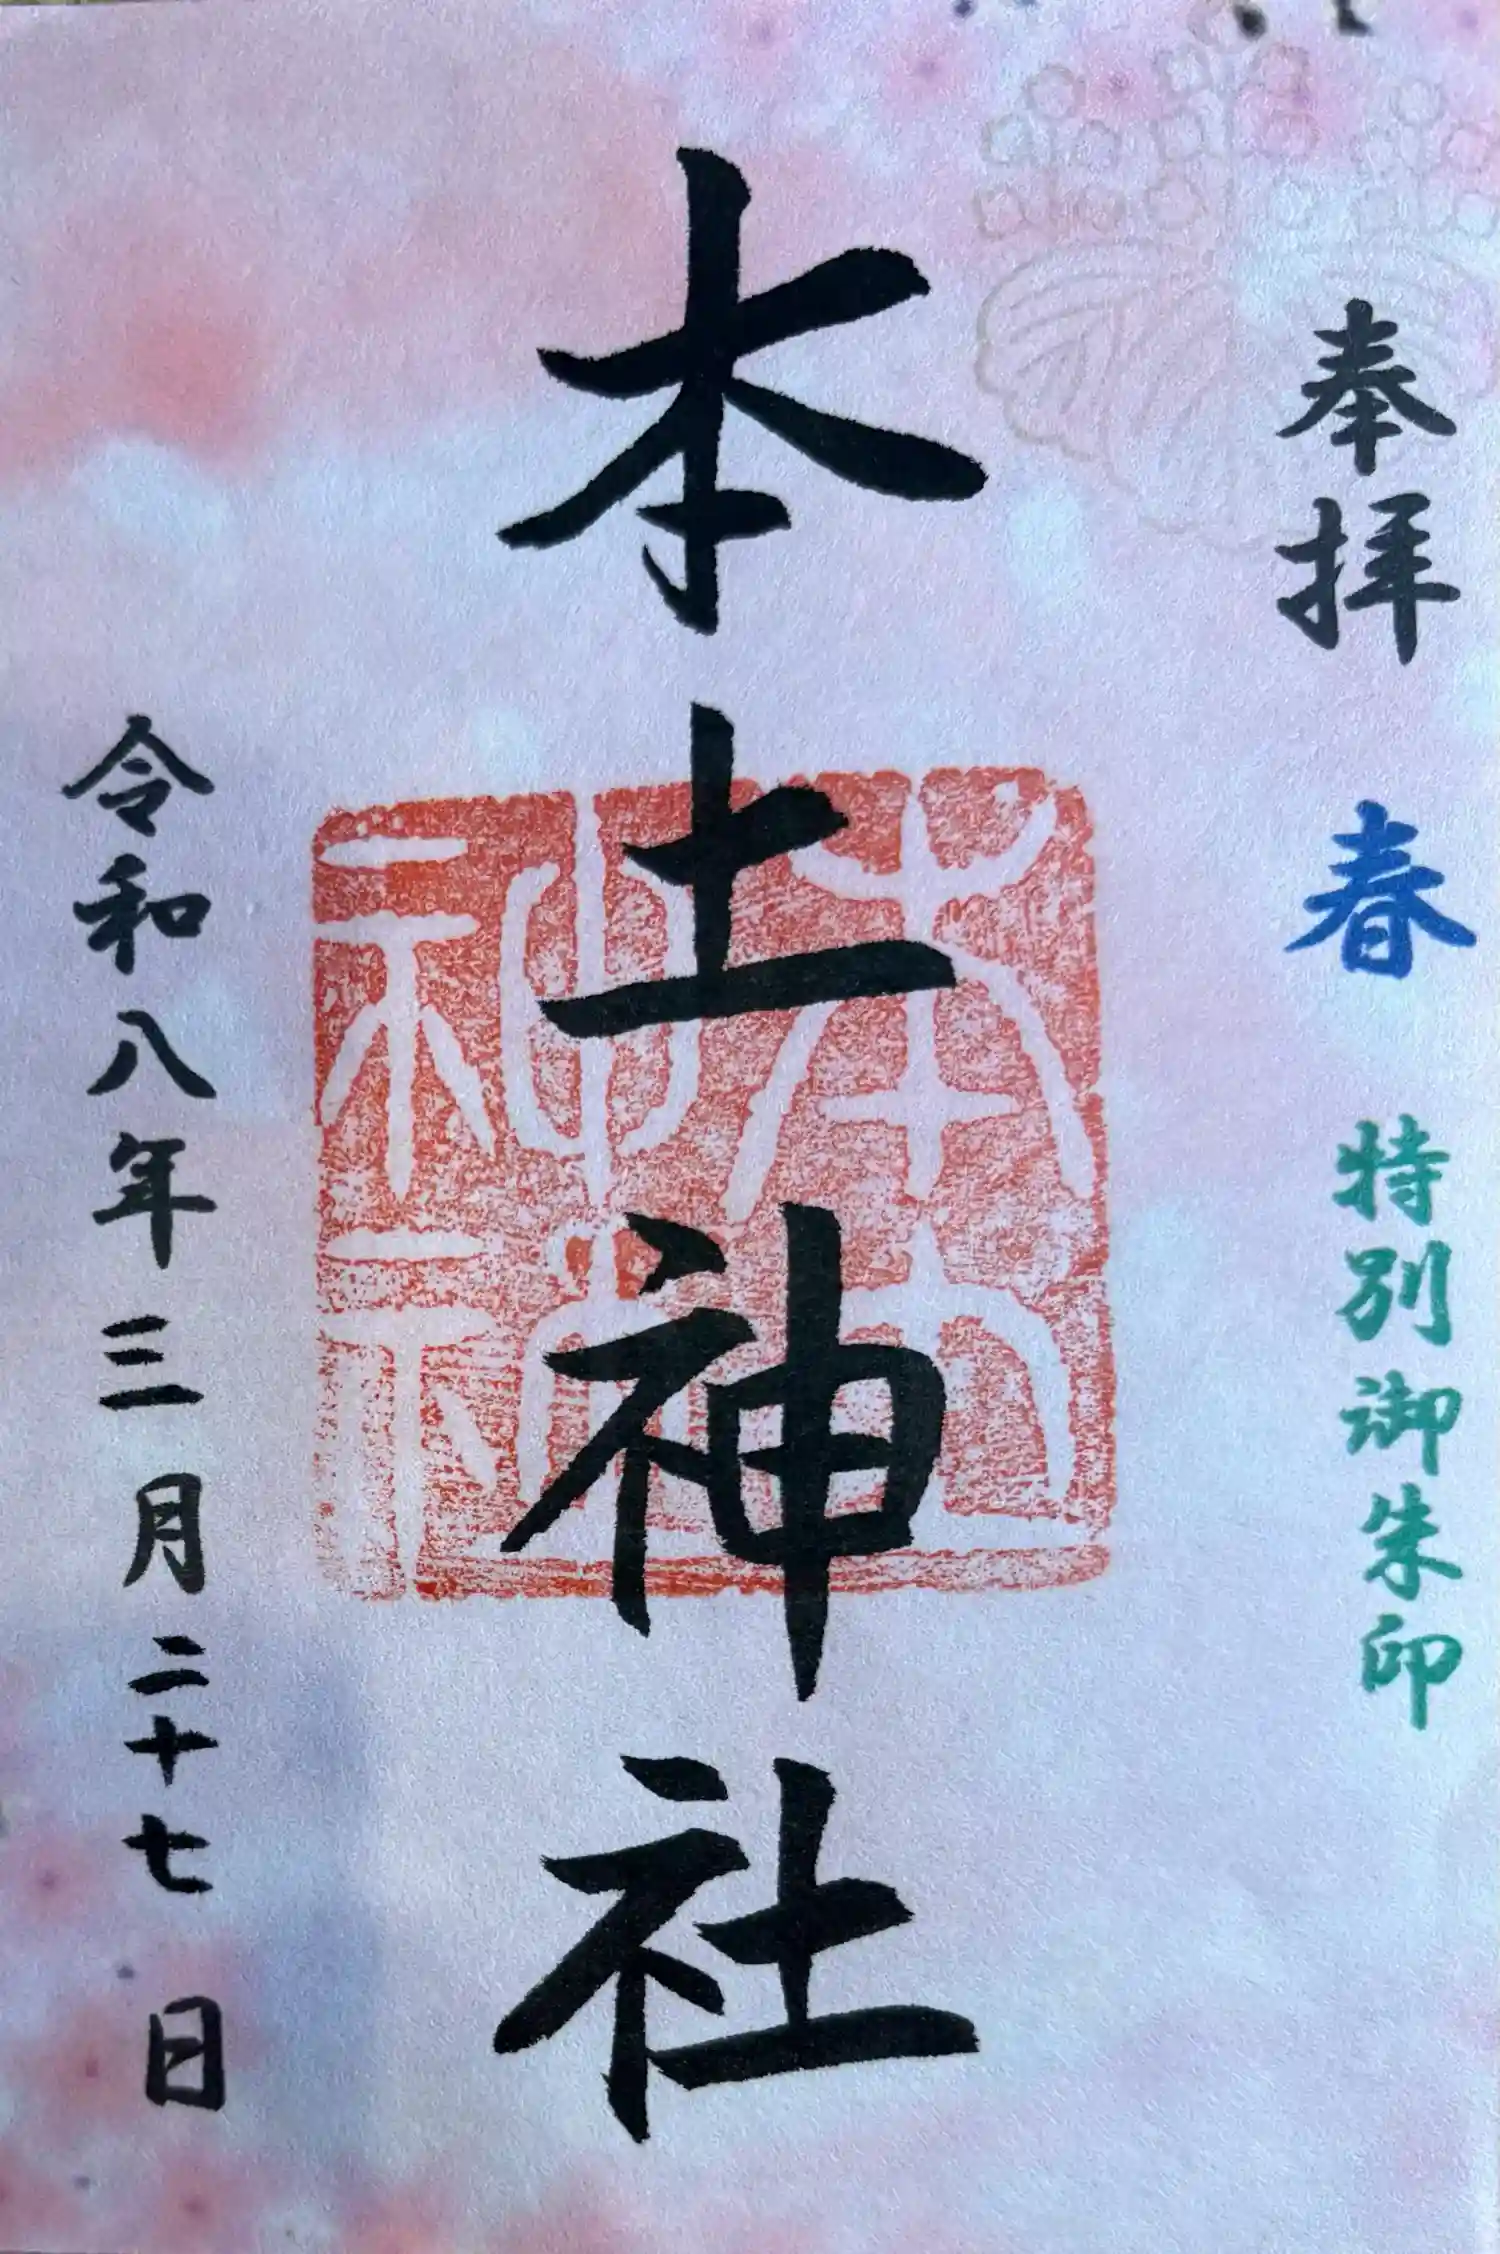 奉拝 春 特別御朱印
本土神社
令和八年三月二十七日